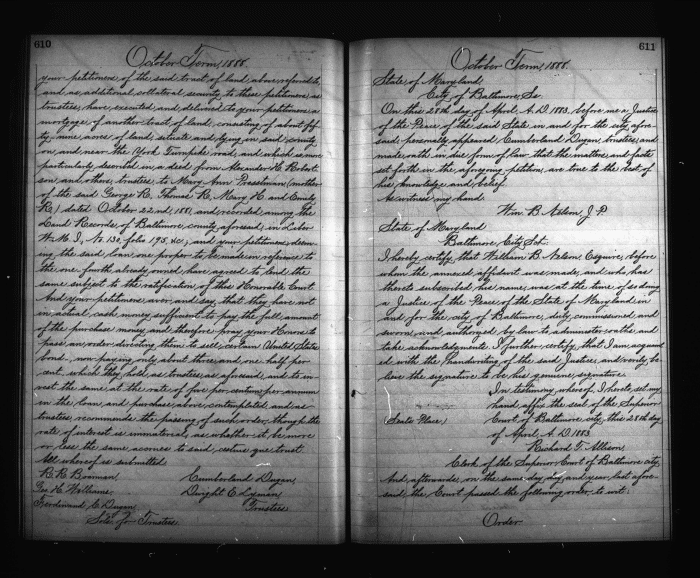 610
October Term, 1888.
your petitioners of the said tract of land above referred to,
and as additional collateral security to these petitioners as
trustees, have executed and delivered to your petitioners a
mortgage of another tract of land, consisting of about fif-
ty nine acres of land, situate and lying in said county,
on and near the York Turnpike road, and which is more
particularly described in a deed from Alexander H. Robert-
son and others, trustees to Mary Ann Presstman (mother
of the said George R., Thomas R., Mary H. and Emily
R.) dated October 22nd, 1851, and recorded among the
Land Records of Baltimore county, aforesaid, in Liber
H. M. F., No 130, folio 195, &c.; and your petitioners deem-
ing the said loan one proper to be made in reference to
the one fourth already owned have agreed to lend the
same subject to the ratification of this Honorable Court.
And your petitioners aver and say, that they have not
in actual cash money sufficient to pay the full amount
of the purchase money, and therefore pray your Honors to
pass an order directing them to sell certain United States
bonds, now paying only about three and one half per
cent, which they hold as trustees, as aforesaid, and to in-
vest the same at the rate of five per centum per annum
in the loan and purchase above contemplated, and as
trustees recommends the passing of such order, though the
rate of interest is immaterial, as whether it be more
or less, the same accrues to said cestuis que trust.
All whereof is submitted.
R. R. Boarman Cumberland Dugan,
Geo. H. Williams, Dwight C. Lyman
Ferdinand C. Dugan Trustees
Sols. for Trustees
611
October Term, 1888.
State of Maryland,
City of Baltimore, Sc.
On this 28th day of April, A. D. 1883, before me a Justice
of the Peace of the said State in and for the city afore-
said, personally appeared Cumberland Dugan, trustee, and
made oath in due form of law that the matters and facts
set forth in the aforegoing petition, are true to the best of
his knowledge and belief.
As witness my hand.
Wm. B. Nelson, J. P.
State of Maryland
Baltimore City Sct:
I hereby certify that William B. Nelson, Esquire, before
whom the annexed affidavit was made, and who has
thereto subscribed his name, was at the time of so doing
a Justice of the Peace of the State of Maryland in
and for the city of Baltimore, duly commissioned and
sworn and authorized by law to administer oaths and
take acknowledgments. I further certify that I am acquaint-
ed with the handwriting of the said Justice, and verily be-
lieve the signature to be his genuine signature.
In testimony whereof I hereto set my
hand affix the seal of the Superior
(Seals Place) Court of Baltimore city, this 28th day
of April, A. D. 1883.
Richard T. Allison,
Clerk of the Superior Court of Baltimore city
And afterwards, on the same day, and year last afore-
said the Court passed the following order to wit:
Order